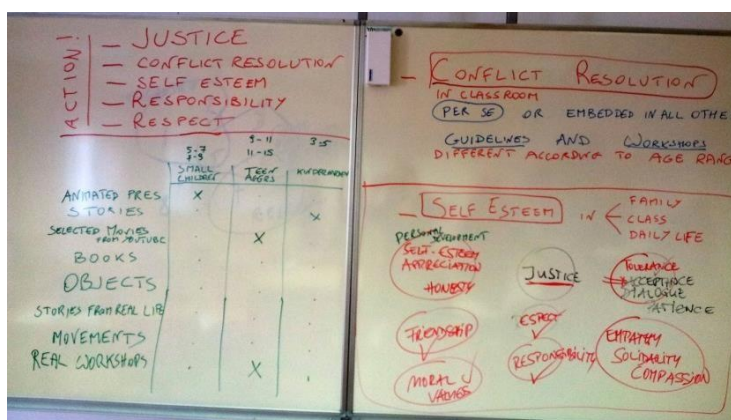 ACTION!
— JUSTICE
— CONFLICT RESOLUTION
— SELF ESTEEM
— RESPONSIBILITY
— RESPECT
5-7 9-11 3-5
7-9 11-15
SMALL CHILDREN TEEN AGERS
ANIMATED PRES X
STORIES X
SELECTED MOVIES X
FROM YOUTUBE
BOOKS
OBJECTS
STORIES FROM REAL LIFE
MOVEMENTS
REAL WORKSHOPS X
— CONFLICT RESOLUTION
IN CLASSROOM
PER SE OR EMBEDDED IN ALL OTHE
GUIDELINES AND WORKSHOPS
DIFFERENT ACCORDING TO AGE RANG
— SELF ESTEEM IN
FAMILY
CLASS
DAILY LIFE
PERSONAL DEVELOPMENT
SELF-ESTEEM
APPRECIATION
HONESTY
JUSTICE
TOLERANCE
ACCEPTANCE
DIALOGUE
PATIENCE
FRIENDSHIP
MORAL
VALUES
ESPECT
RESPONSIBILITY
EMPATHY
SOLIDALITY
COMPASSION